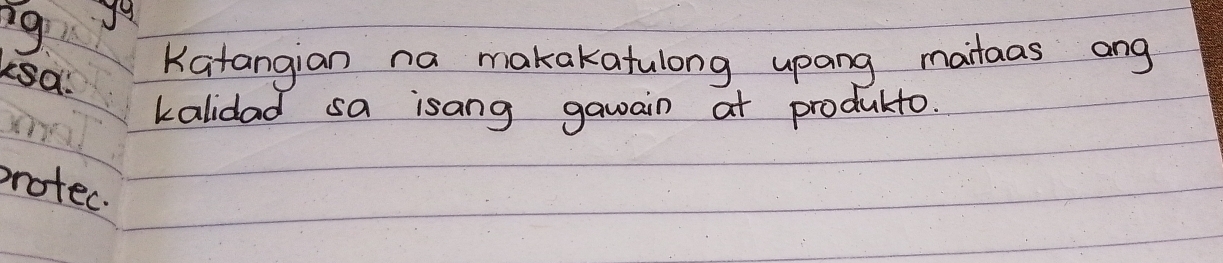 ng
ksa:
Katangian na makakatulong upang maitaas ang
kalidad sa isang gawain at produkto.
protec.